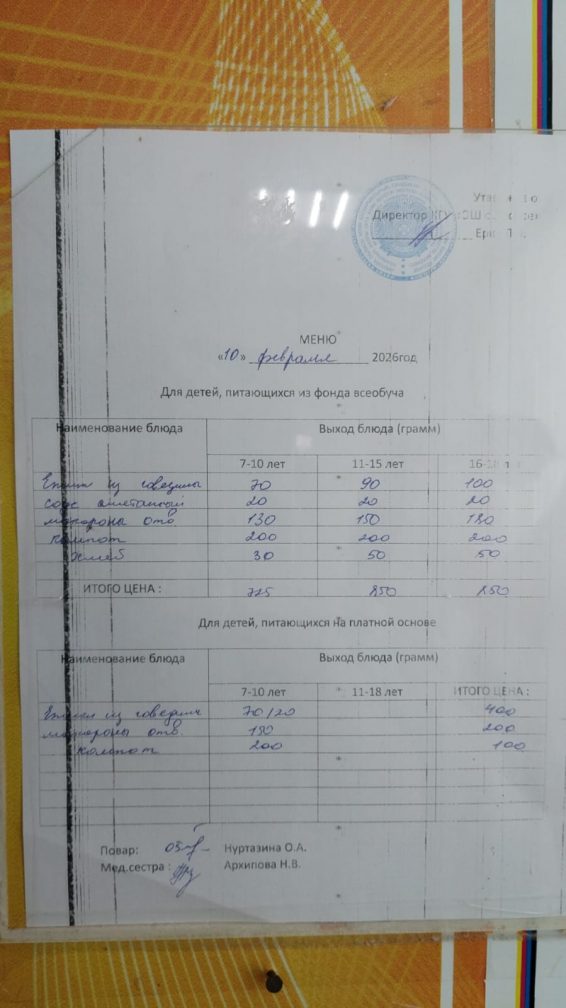 Директор КГУ
МЕНЮ
«10» февраля 2026год
Для детей, питающихся из фонда всеобуча
Наименование блюда Выход блюда (грамм)
7-10 лет 11-15 лет 16-18 лет
из говядины 70 90 100
соус сметанный 20 20 20
макароны отв. 130 150 180
компот 200 200 200
хлеб 30 50 50
ИТОГО ЦЕНА : 725 850 850
Для детей, питающихся на платной основе
Наименование блюда Выход блюда (грамм)
7-10 лет 11-18 лет ИТОГО ЦЕНА :
из говядин 70/20 400
макароны отв. 150 200
компот 200 100
Повар: Нуртазина О.А.
Мед.сестра : Архипова Н.В.